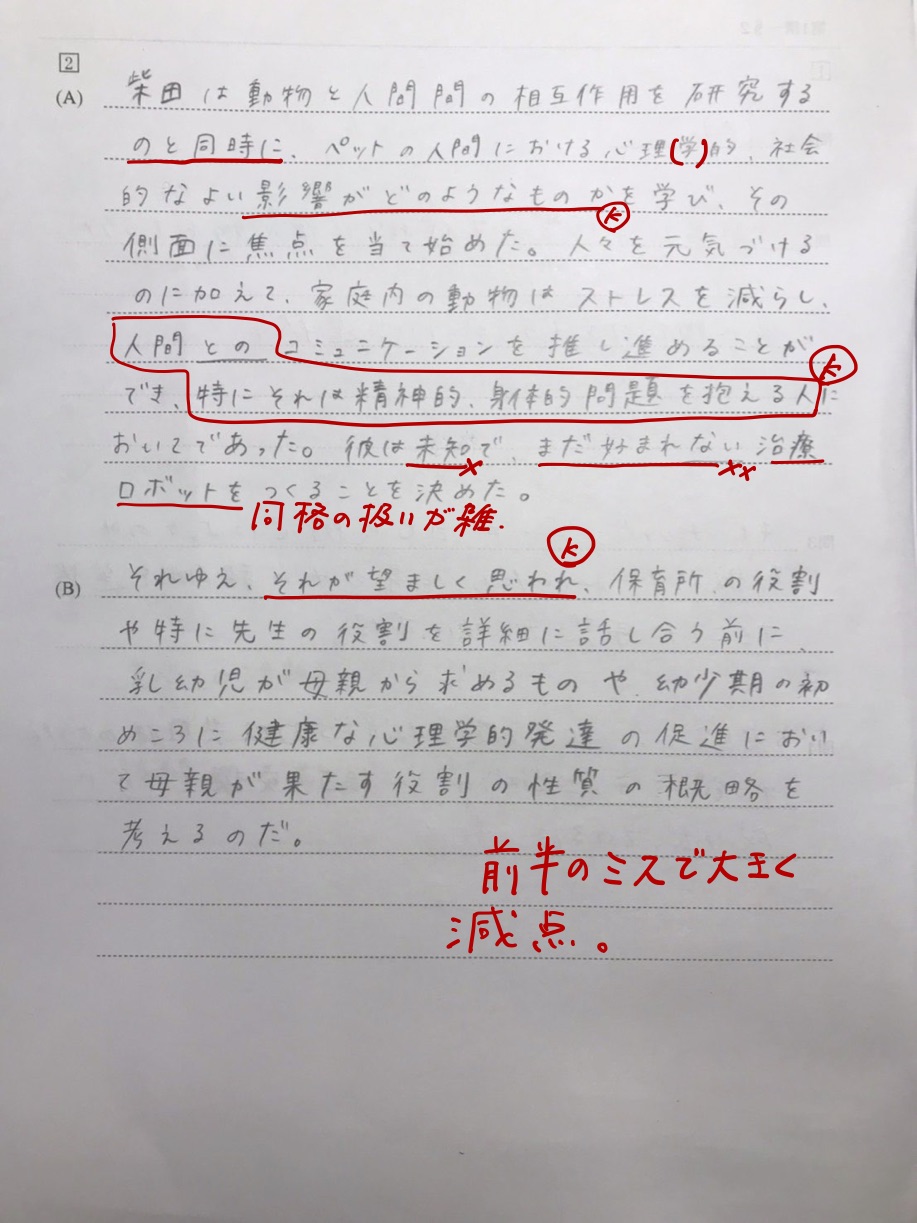 2
(A) 柴田は動物と人間間の相互作用を研究する
のと同時に、ペットの人間における心理(学)的、社会
的なよい影響がどのようなものかを学び、その
k
側面に焦点を当て始めた。人々を元気づける
のに加えて、家庭内の動物はストレスを減らし、
人間とのコミュニケーションを推し進めることが
k
でき、特にそれは精神的、身体的問題を抱える人に
おいてであった。彼は未知で、まだ好まれない治療
x xx
ロボットをつくることを決めた。
同格の扱いが雑.
k
(B) それゆえ、それが望ましく思われ、保育所の役割
や特に先生の役割を詳細に話し合う前に、
乳幼児が母親から求めるものや、幼少期の初
めころに健康な心理学的発達の促進におい
て母親が果たす役割の性質の概略を
考えるのだ。
前半のミスで大きく
減点。